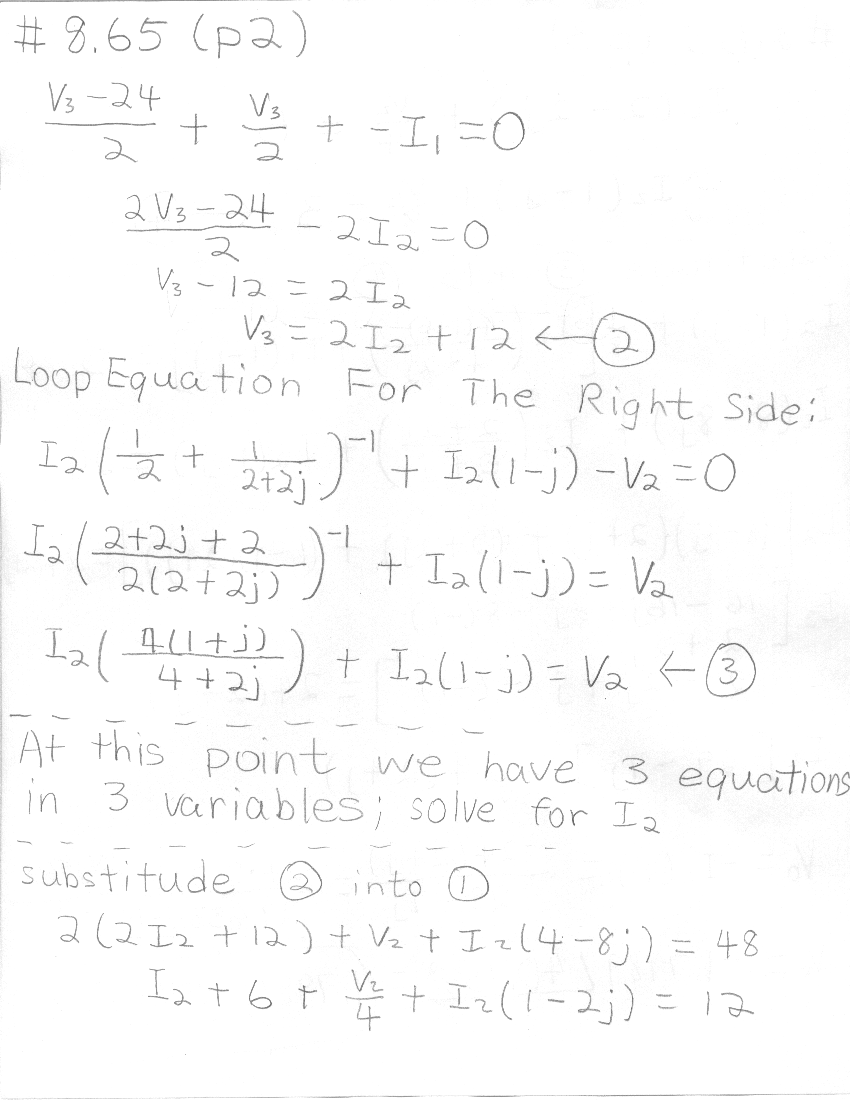 # 8.65 (p2)
(V₃ - 24)/2 + V₃/2 + - I₁ = 0
(2V₃ - 24)/2 - 2I₂ = 0
V₃ - 12 = 2I₂
V₃ = 2I₂ + 12 ← ②
Loop Equation For The Right Side:
I₂(1/2 + 1/(2+2j))⁻¹ + I₂(1-j) - V₂ = 0
I₂((2+2j+2)/(2(2+2j)))⁻¹ + I₂(1-j) = V₂
I₂(4(1+j)/(4+2j)) + I₂(1-j) = V₂ ← ③
At this point we have 3 equations
in 3 variables; solve for I₂
substitude ② into ①
2(2I₂ + 12) + V₂ + I₂(4-8j) = 48
I₂ + 6 + V₂/4 + I₂(1-2j) = 12